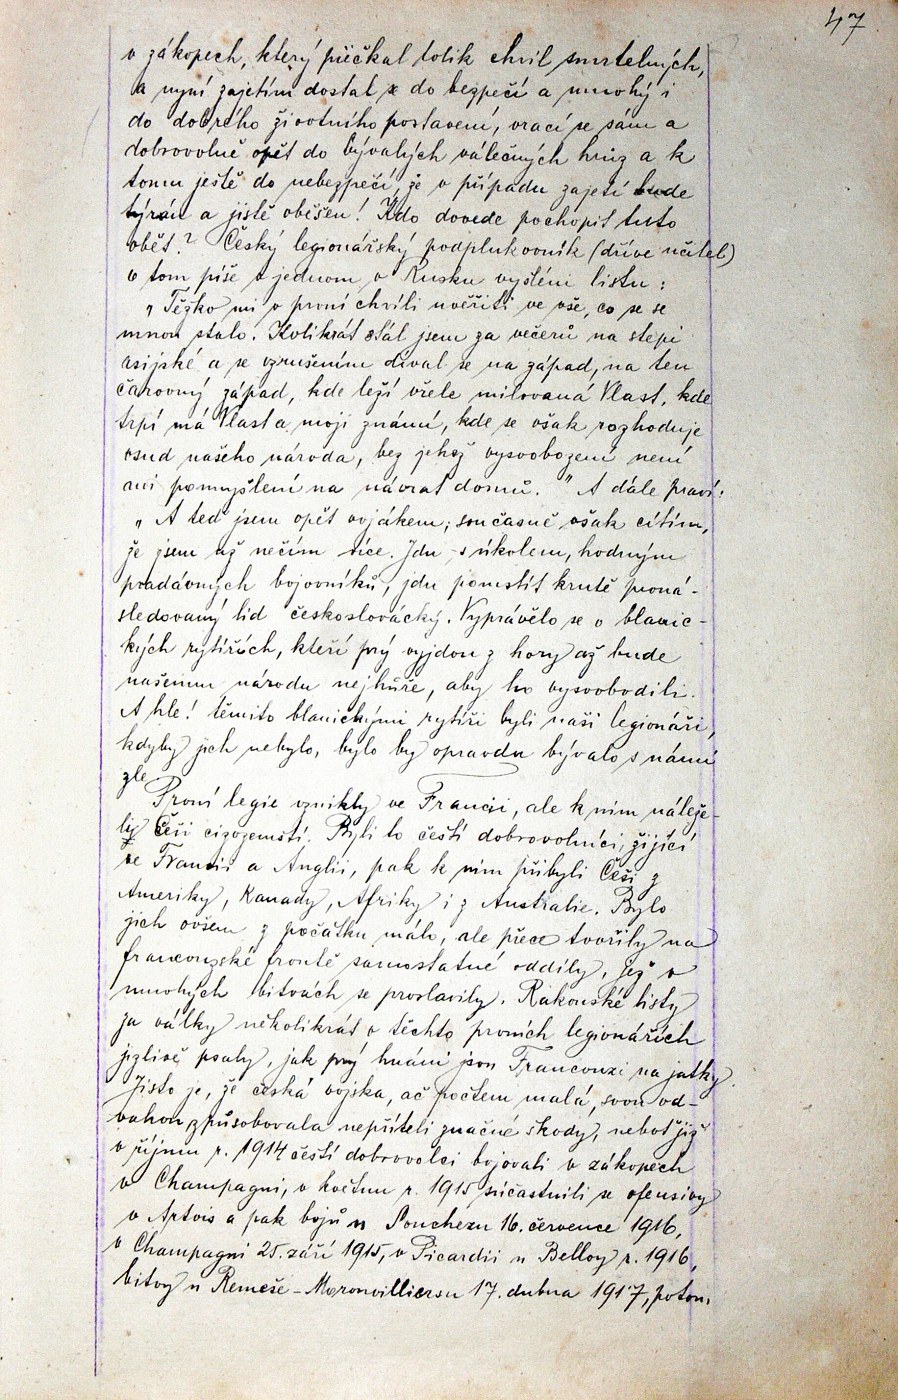 47
v zákopech, který přečkal tolik chvil smrtelných,
a nyní zajetím dostal se do bezpečí a mnohý i
do dobrého životního postavení, vrací se sám a
dobrovolně opět do bývalých válečných hrůz a k
tomu ještě do nebezpečí, že v případu zajetí bude
týrán a jistě oběšen! Kdo dovede pochopit tuto
oběť? Český legionářský podplukovník (dříve učitel)
o tom píše v jednom v Rusku vyšlém listu:
„Těžko mi v první chvíli uvěřiti ve vše, co se se
mnou stalo. Kolikrát stál jsem za večerů na stepi
asijské a se vzrušením díval se na západ, na ten
čarovný západ, kde leží vřele milovaná Vlast, kde
trpí má Vlast a moji známí, kde se však rozhoduje
osud našeho národa, bez jehož vysvobození není
ani pomyšlení na návrat domů." A dále praví:
„A teď jsem opět vojákem; současně však cítím,
že jsem až nečím více. Jdu s úkolem, hodným
pradávných bojovníků, jdu pomstít krutě proná-
sledovaný lid československý. Vyprávělo se o blanic-
kých rytířích, kteří prý vyjdou z hory až bude
našemu národu nejhůře, aby ho vysvobodili.
A hle! těmito blanickými rytíři byli naši legionáři,
kdyby jich nebylo, bylo by opravdu bývalo s námi
zle
První legie vznikly ve Francii, ale k nim náleže-
li Češi cizozemští. Byli to čeští dobrovolníci, žijící
ve Francii a Anglii, pak k nim přibyli Češi z
Ameriky, Kanady, Afriky i z Australie. Bylo
jich ovšem z počátku málo, ale přece tvořily na
francouzské frontě samostatné oddíly, jež v
mnohých bitvách se proslavily. Rakouské listy
za války několikrát o těchto prvních legionářích
jizlivě psaly, jak prý hnáni jsou Francouzi na jatky.
Jisto je, že česká vojska, ač počtem malá, svou od-
vahou způsobovala nepříteli značné škody, neboť již
v říjnu r. 1914 čeští dobrovolci bojovali v zákopech
v Champagni, v květnu r. 1915 súčastnili se ofensivy
v Artois a pak bojů u Souchezu 16. července 1916,
v Champagni 25. září 1915, v Picardii u Belloy r. 1916,
bitvy u Remeše - Moronvilliersu 17. dubna 1917, potom